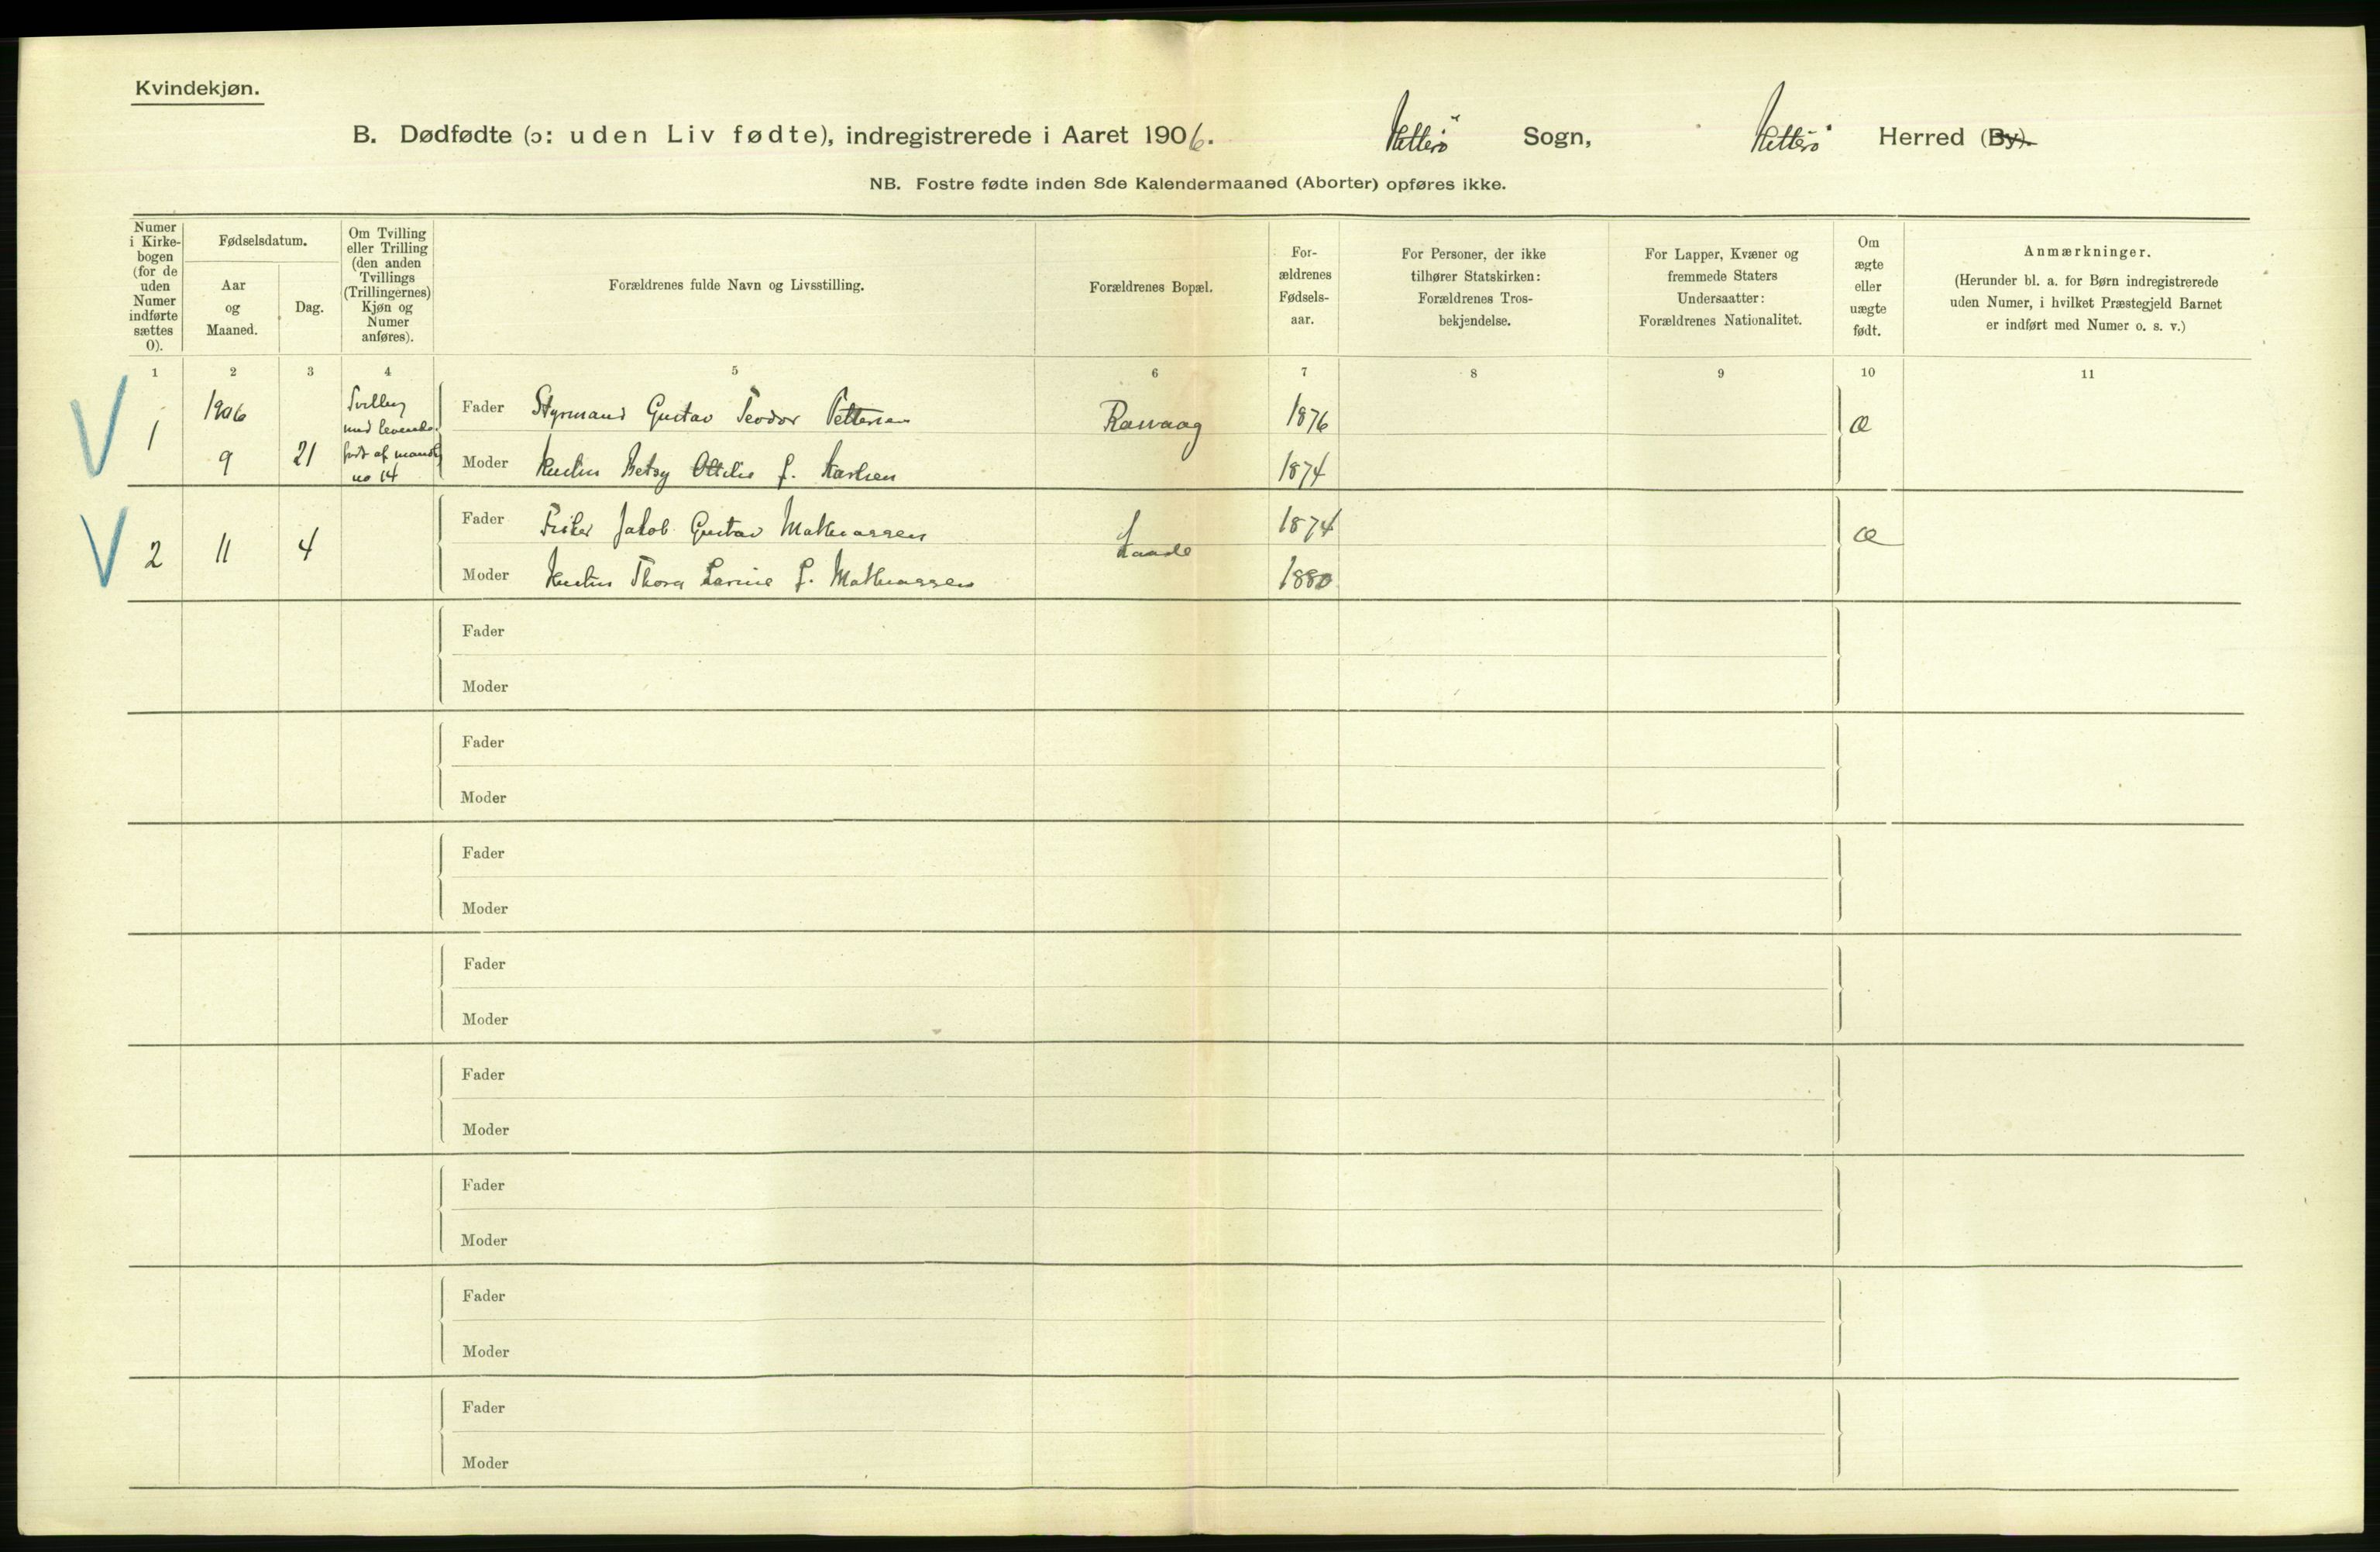 Kvindekjøn.
B. Dødfødte (ɔ: uden Liv fødte), indregistrerede i Aaret 1906. Hitterø Sogn, Hitterø Herred (By).
NB. Fostre fødte inden 8de Kalendermaaned (Aborter) opføres ikke.
Numer i Kirke-bogen (for de uden Numer indførte sættes 0).
Fødselsdatum.
Aar og Maaned.
Dag.
Om Tvilling eller Trilling (den anden Tvillings (Trillingernes) Kjøn og Numer anføres).
Forældrenes fulde Navn og Livsstilling.
Forældrenes Bopæl.
For-ældrenes Fødsels-aar.
For Personer, der ikke tilhører Statskirken: Forældrenes Tros-bekjendelse.
For Lapper, Kvæner og fremmede Staters Undersaatter: Forældrenes Nationalitet.
Om ægte eller uægte født.
Anmærkninger.
(Herunder bl. a. for Børn indregistrerede uden Numer, i hvilket Præstegjeld Barnet er indført med Numer o. s. v.)
1 2 3 4 5 6 7 8 9 10 11
1 1906 9 21 Tvilling med levende født af mandkj no 14
Fader Styrmand Gustav Teodor Pettersen Rasvaag 1876 æ
Moder Hustru Betsy Ottilie f. Karlsen 1874
2 11 4
Fader Fisker Jakob Gustav Mathiassen 1874 æ
Moder Hustru Thora Larine f. Mathiassen 1880
Fader
Moder
Fader
Moder
Fader
Moder
Fader
Moder
Fader
Moder
Fader
Moder
Fader
Moder
Fader
Moder